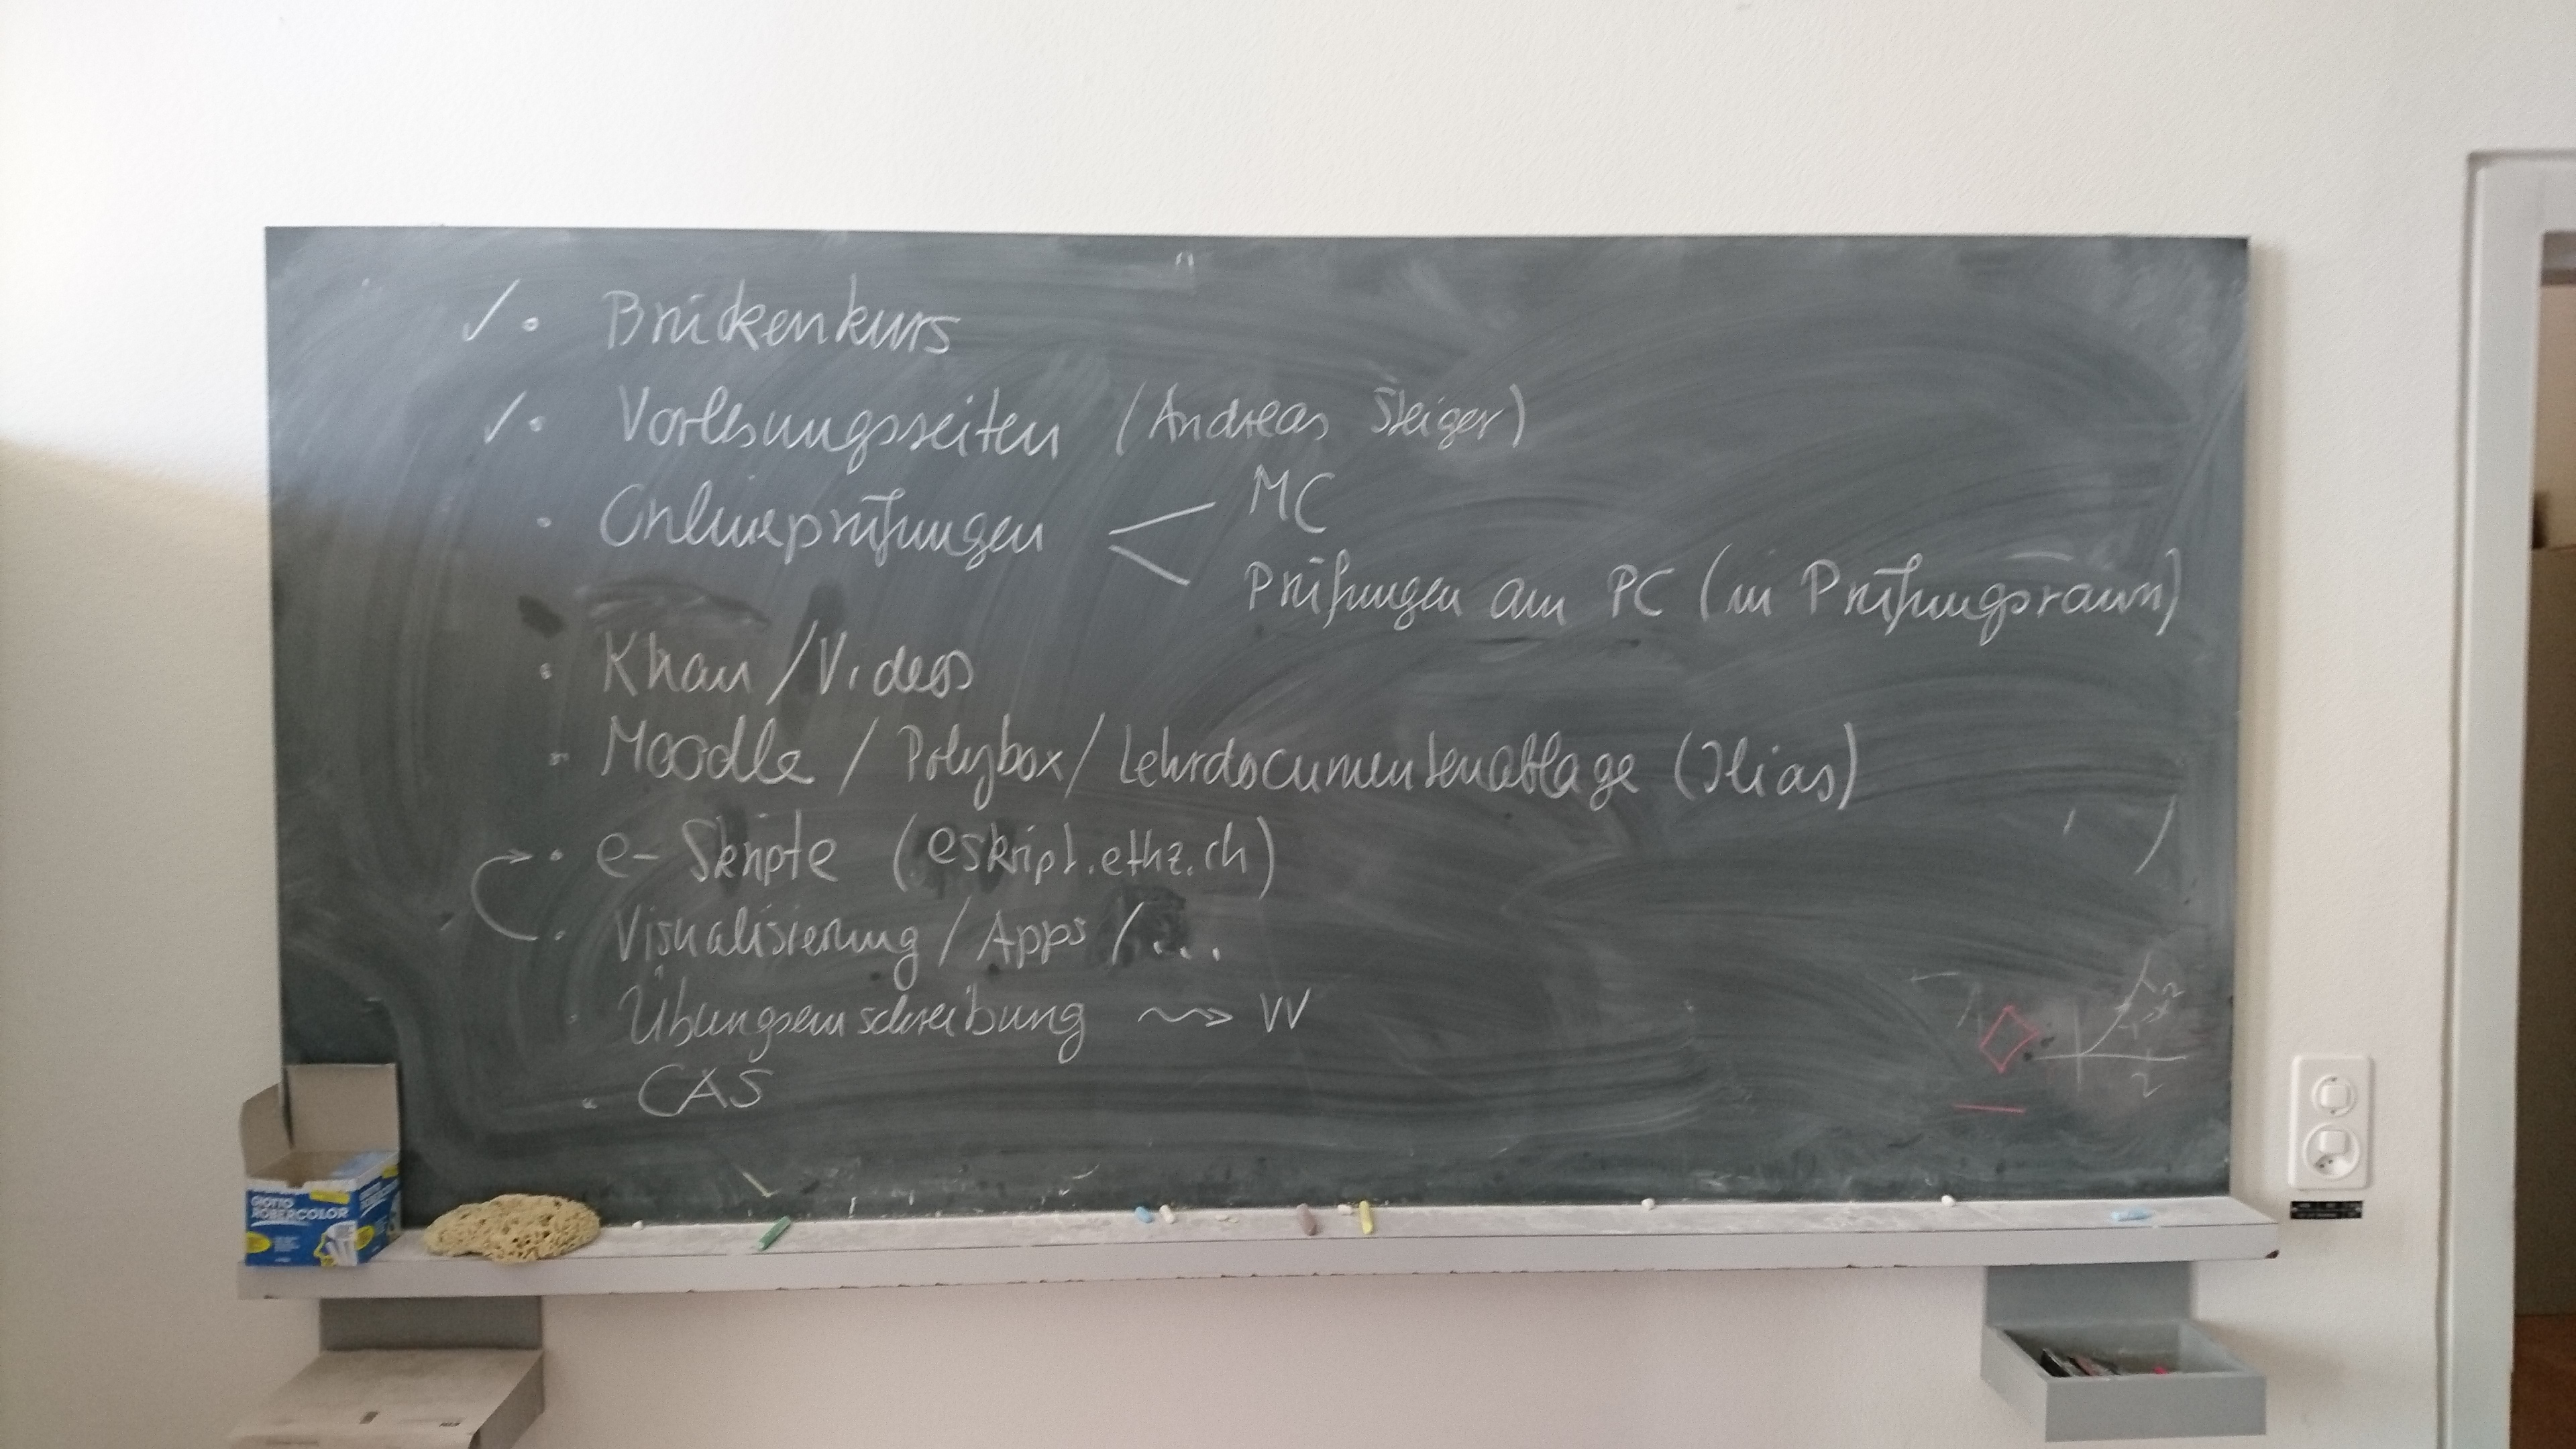 ✓ • Brückenkurs
✓ • Vorlesungsseiten (Andreas Steiger)
• Onlineprüfungen < MC
Prüfungen am PC (in Prüfungsraum)
• Khan / Videos
• Moodle / Polybox / Lehrdocumentenablage (Ilias)
• e-Skripte (eskript.ethz.ch)
• Visualisierung / Apps / ...
• Übungseinschreibung ⇝ VV
• CAS
2
GIOTTO
ROBERCOLOR